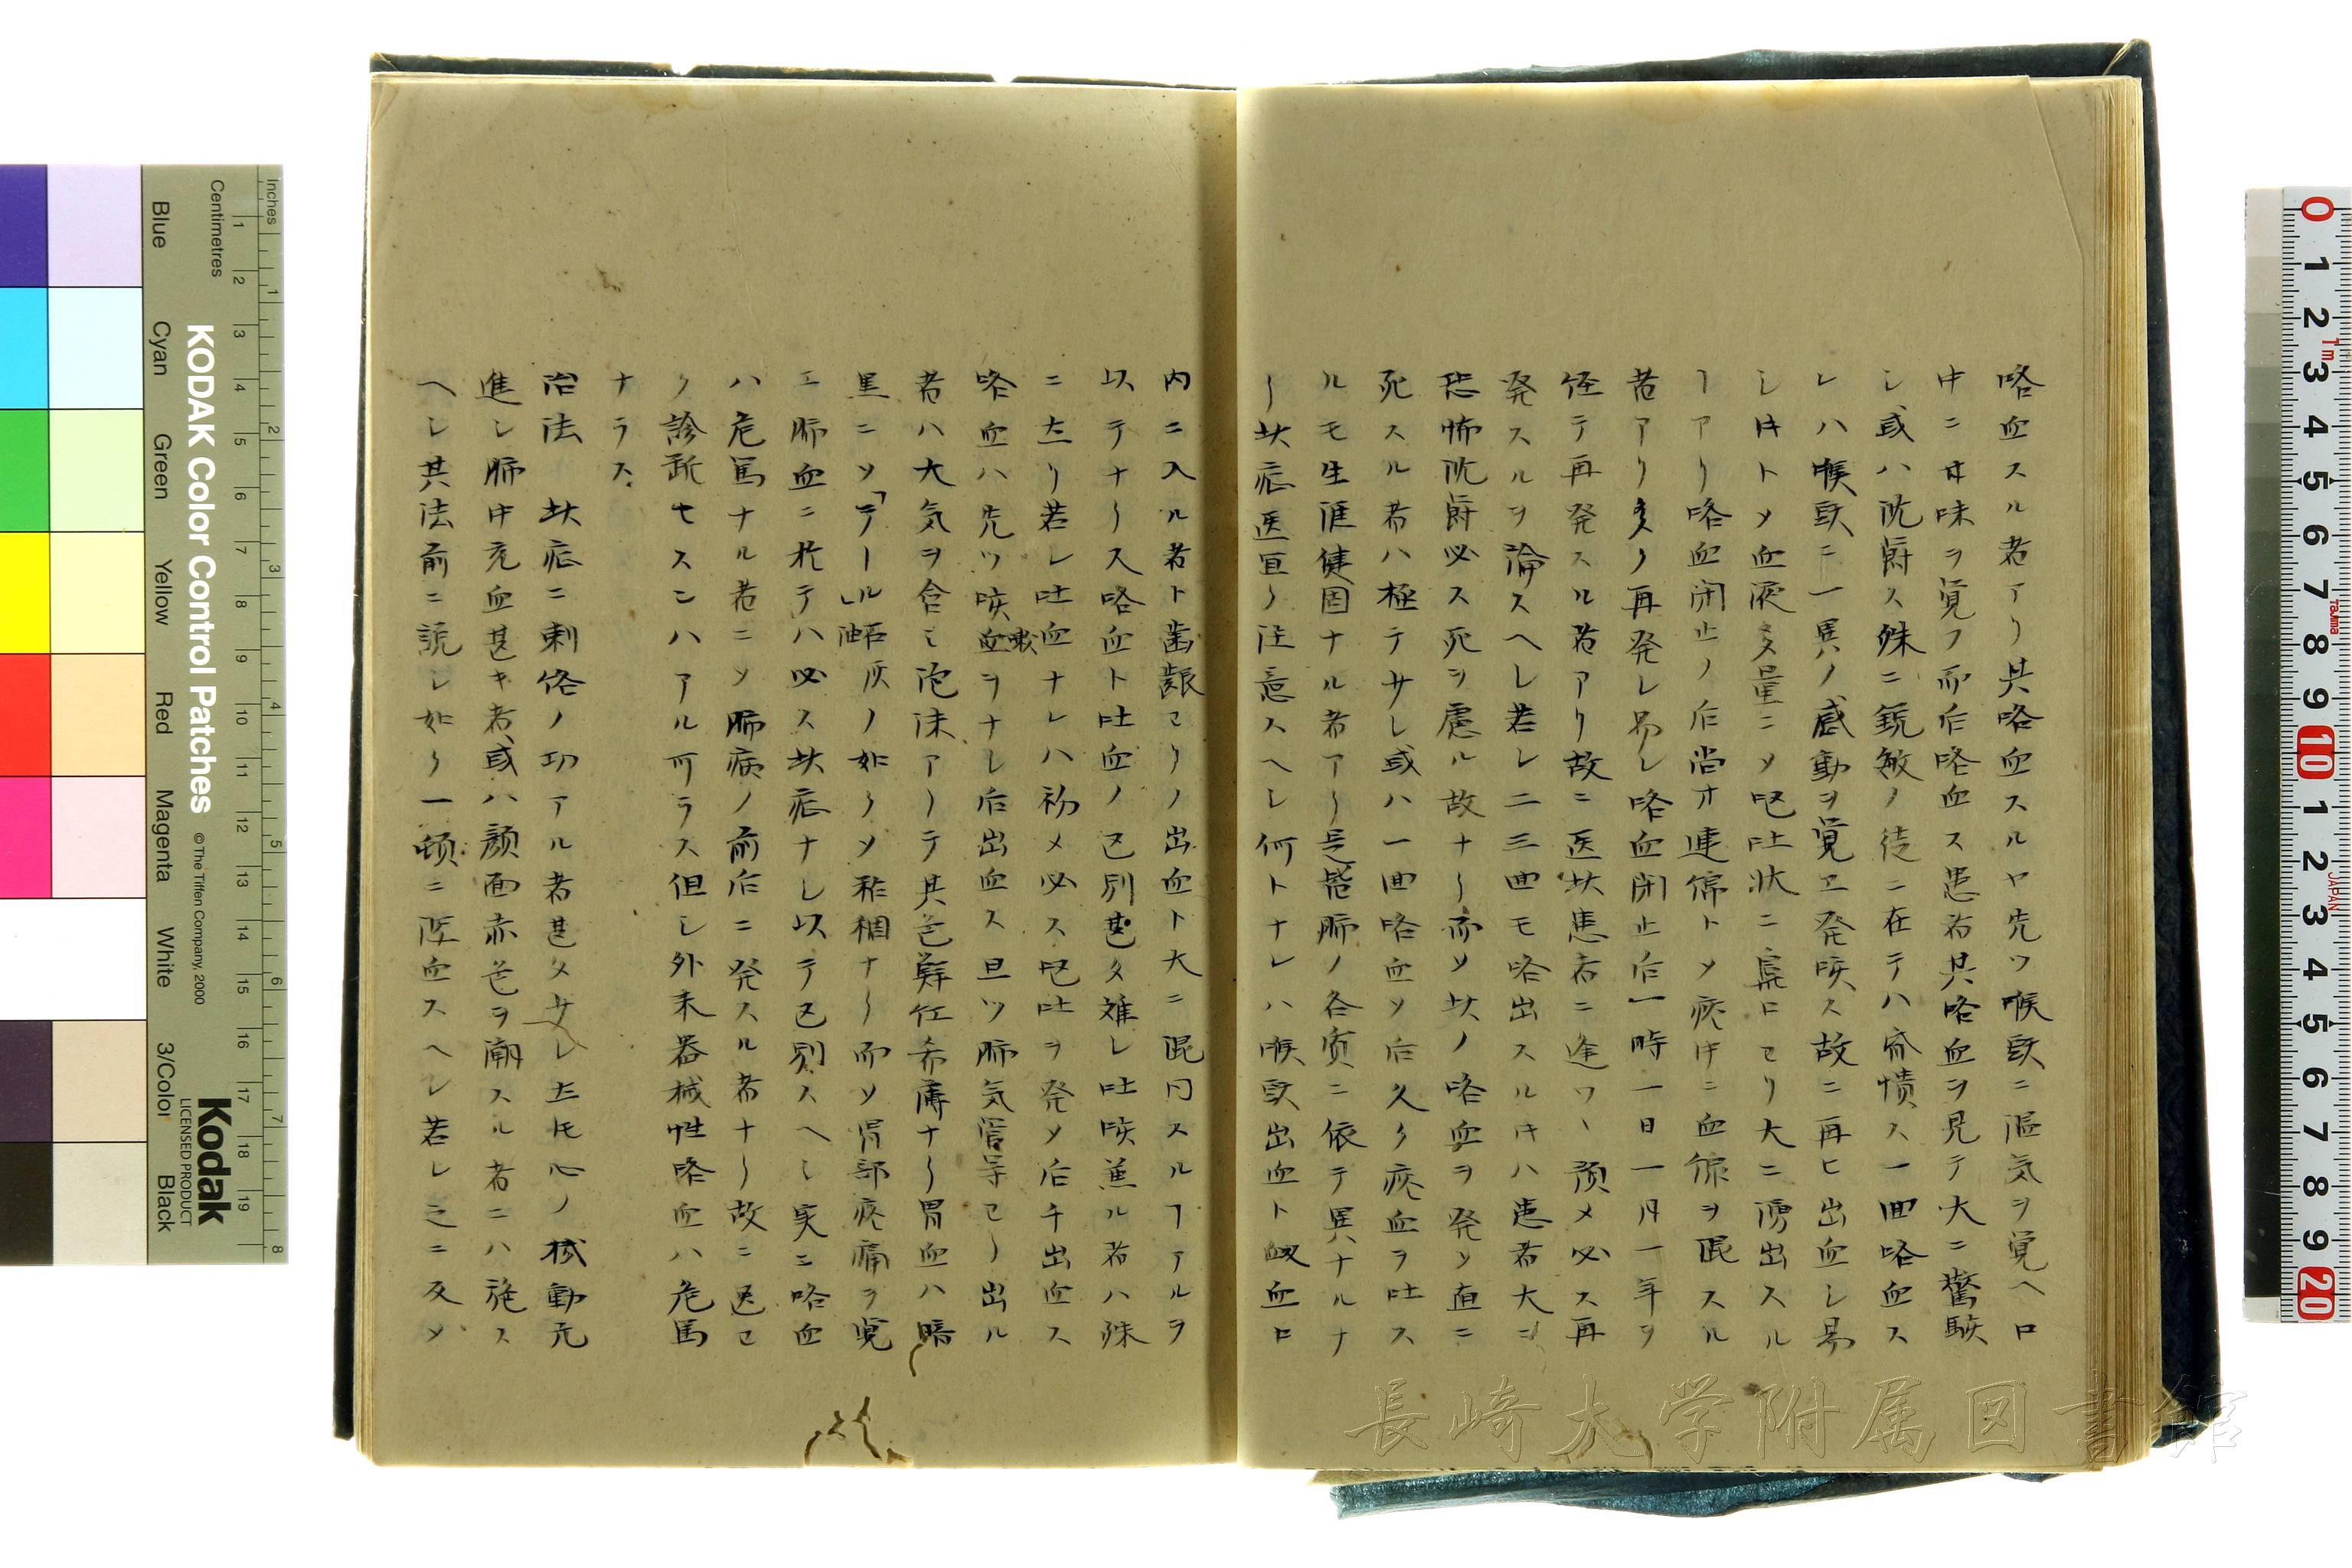 咯血スル者アリ其咯血スルヤ先ツ喉頭ニ温気ヲ覚ヘ口
中ニ甘味ヲ覚フ而后咯血ス患者其咯血ヲ見テ大ニ驚駭
シ或ハ沈欝ス殊ニ鋭敏ノ徒ニ在テハ一回咯血ス
レハ喉頭ニ一異ノ感動ヲ覚エ発咳ス故ニ再ヒ出血シ易
シ𪜈トメ血液多量ニメ吐状ニ鼻口ヨリ大ニ湧出スル
ヿアリ咯血閉止ノ后尚オ連綿トメ痰中ニ血線ヲ混スル
者アリ多クノ再発シ易シ咯血閉止后一時一日一月一年ヲ
径テ再発スル者アリ故ニ医此患者ニ逢ワハ預メ必ス再
発スルヲ論スヘシ若シ二三回モ咯出スル𪜈ハ患者大ニ
恐怖沈欝必ス死ヲ慮ル故ナリ而メ此ノ咯血ヲ発メ直ニ
死スル者ハ極テサシ或ハ一回咯血メ后久ク痰血ヲ吐ス
ルモ生涯健固ナル者アリ是皆肺ノ各質ニ依テ異ナルナ
リ此症医宜ク注意スヘシ何トナレハ喉頭出血ト衂血口
内ニ入ル者ト歯齦ヨリノ出血ト大ニ混同スルヿアルヲ
以テナリス咯血ト吐血ノ区別甚タ難シ吐咳兼ル者ハ殊
ニ然リ若シ吐血ナレハ初メ必ス吐ヲ発メ后チ出血ス
咯血ハ先ツ咳嗽血ヲナシ后出血ス且ツ肺気管等ヨリ出ル
者ハ大気ヲ含ミ泡沫アリテ其色鮮紅希薄ナリ胃血ハ暗
黒ニメ「テール」灰ノ如クメ稠ナリ而メ胃部疼痛ヲ覚
エ肺血ニ於テハ必ス此症ナシ以テ区別スヘシ実ニ咯血
ハ危篤ナル者ニメ肺病ノ前后ニ発スル者ナリ故ニ
ク診訴セスンハアル可ラス但シ外来器械性咯血ハ危篤
ナラス
治法 此症ニ刺絡ノ功アル者甚タサシ然𪜈心ノ機動亢
進シ肺中充血甚キ者或ハ顔面赤色ヲ潮スル者ニハ施ス
ヘシ其法前ニ説シ如ク一頓ニ瀉血スヘシ若シ之ニ反メ
0 1 2 3 4 5 6 7 8 9 10 1 2 3 4 5 6 7 8 9 20
1m
Tajima
JAPAN
Inches
Centimetres
KODAK Color Control Patches
© The Tiffen Company, 2000
Kodak
LICENSED PRODUCT
Blue Cyan Green Yellow Red Magenta White 3/Color Black
長崎大学附属図書館